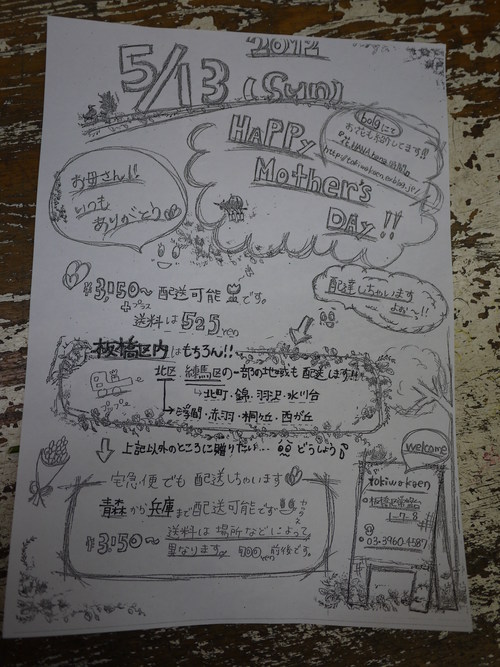 2012
5/13 (Sun)
HAPPY
Mother's
DAY!!
bolgにて
お花も紹介してます!!
お母さん!!
いつも
ありがとう
配達しちゃいます
よぉ〜!!
¥3,150〜 配送可能です。
+プラス
送料は525yen
板橋区内はもちろん!!
北区 練馬区の一部の地域も配送します!!
北町・錦・羽沢・氷川台
浮間・赤羽・桐ヶ丘・西が丘
上記以外のところに贈りたい… どうしよう
宅急便でも配送しちゃいます
青森から兵庫まで配送可能です
¥3,150〜 送料は場所などによって
異なります。900yen前後です。
welcome
tokiwakoen
板橋区常盤台
1-7-8
03-3960-4587